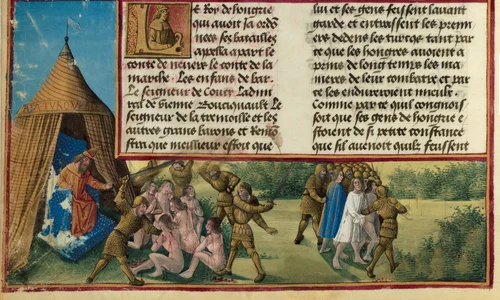 Le Roy de hongrie
qui auoit ja ordō
nees ses batailles
appella a part le
conte de neuers le conte de la
marche . Les enfans de bar .
Le seigneur de Coucy Ladmi
ral de vienne Boucquault Le
seigneur de la tremoille et les
autres grans barons et remō
stra que meilleur estoit que
lui et ses gens feissent lauant
garde et entrassent les premi
ers dedens les turcqz tant par
ce que les hongres auoient a
prins de long temps les ma
nieres de leur combatre et par
ce les endureroient mieulx .
Comme par ce quil congnois
soit que ses gens de hongrie e
stoient de si petite constance
que sil auenoit quilz feussent